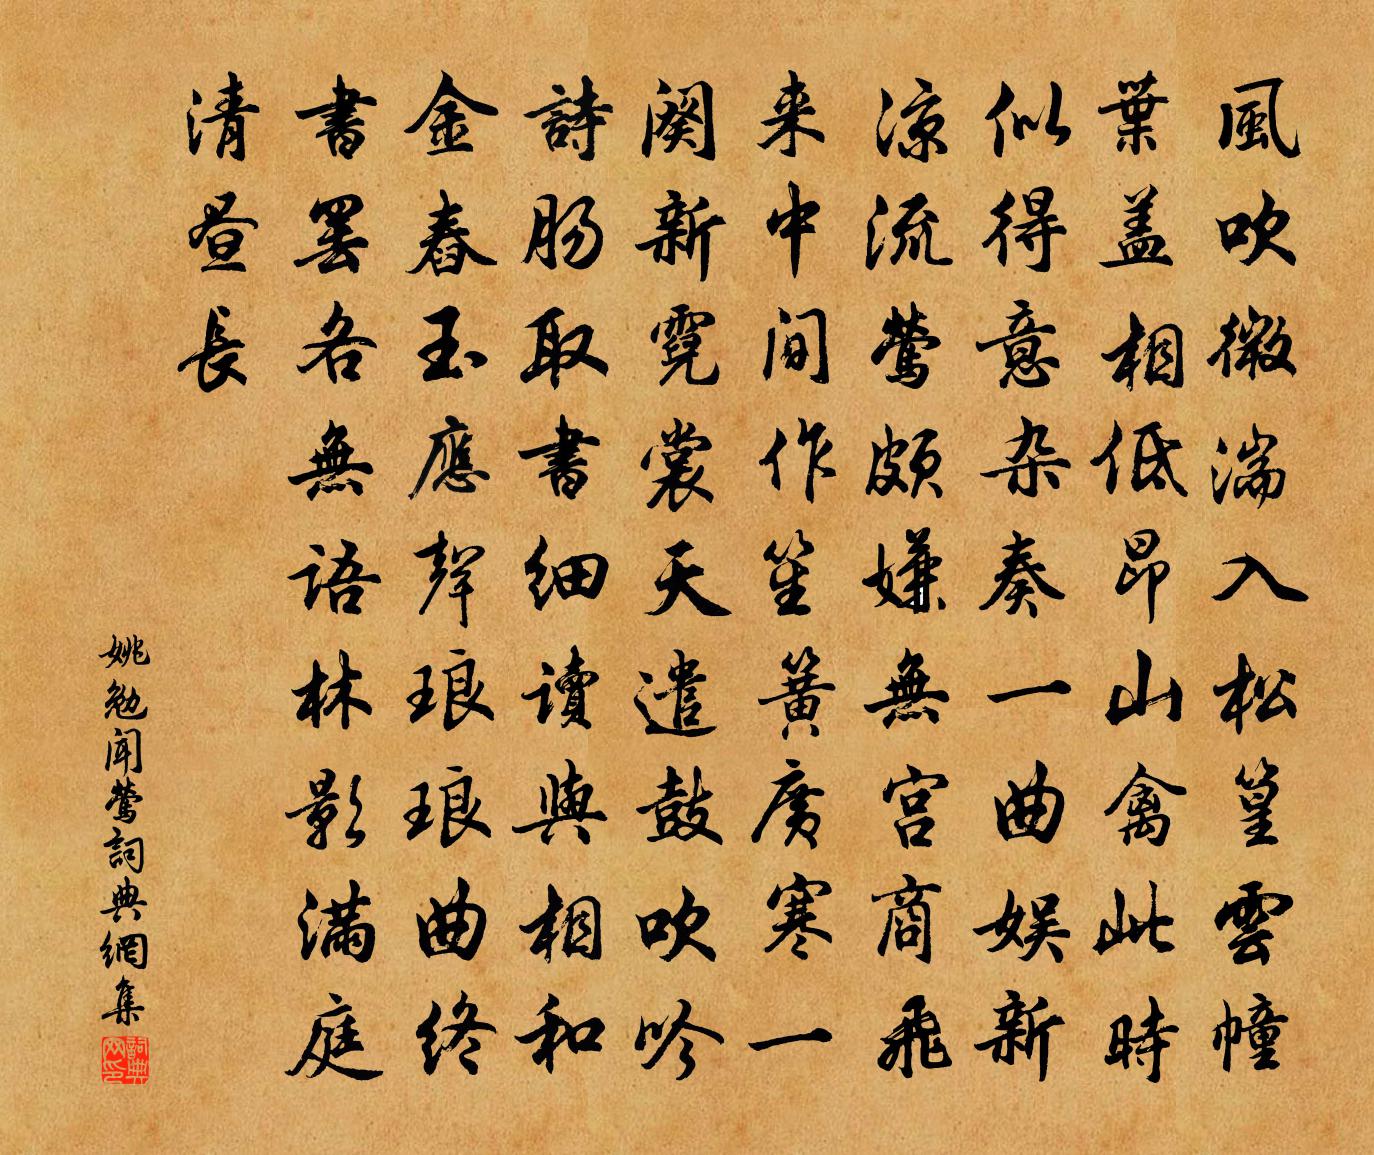 風吹微湍入松篁雲幢
葉盖相低昂山禽此時
似得意杂奏一曲娱新
涼流鶯頗嫌無宫商飛
来中间作笙簧廣寒一
阕新霓裳天遣鼓吹吟
詩肠取書细讀與相和
金舂玉應聲琅琅曲终
書罢各無語林影滿庭
清昼長
姚勉闻鶯詞典網集
詞典网印